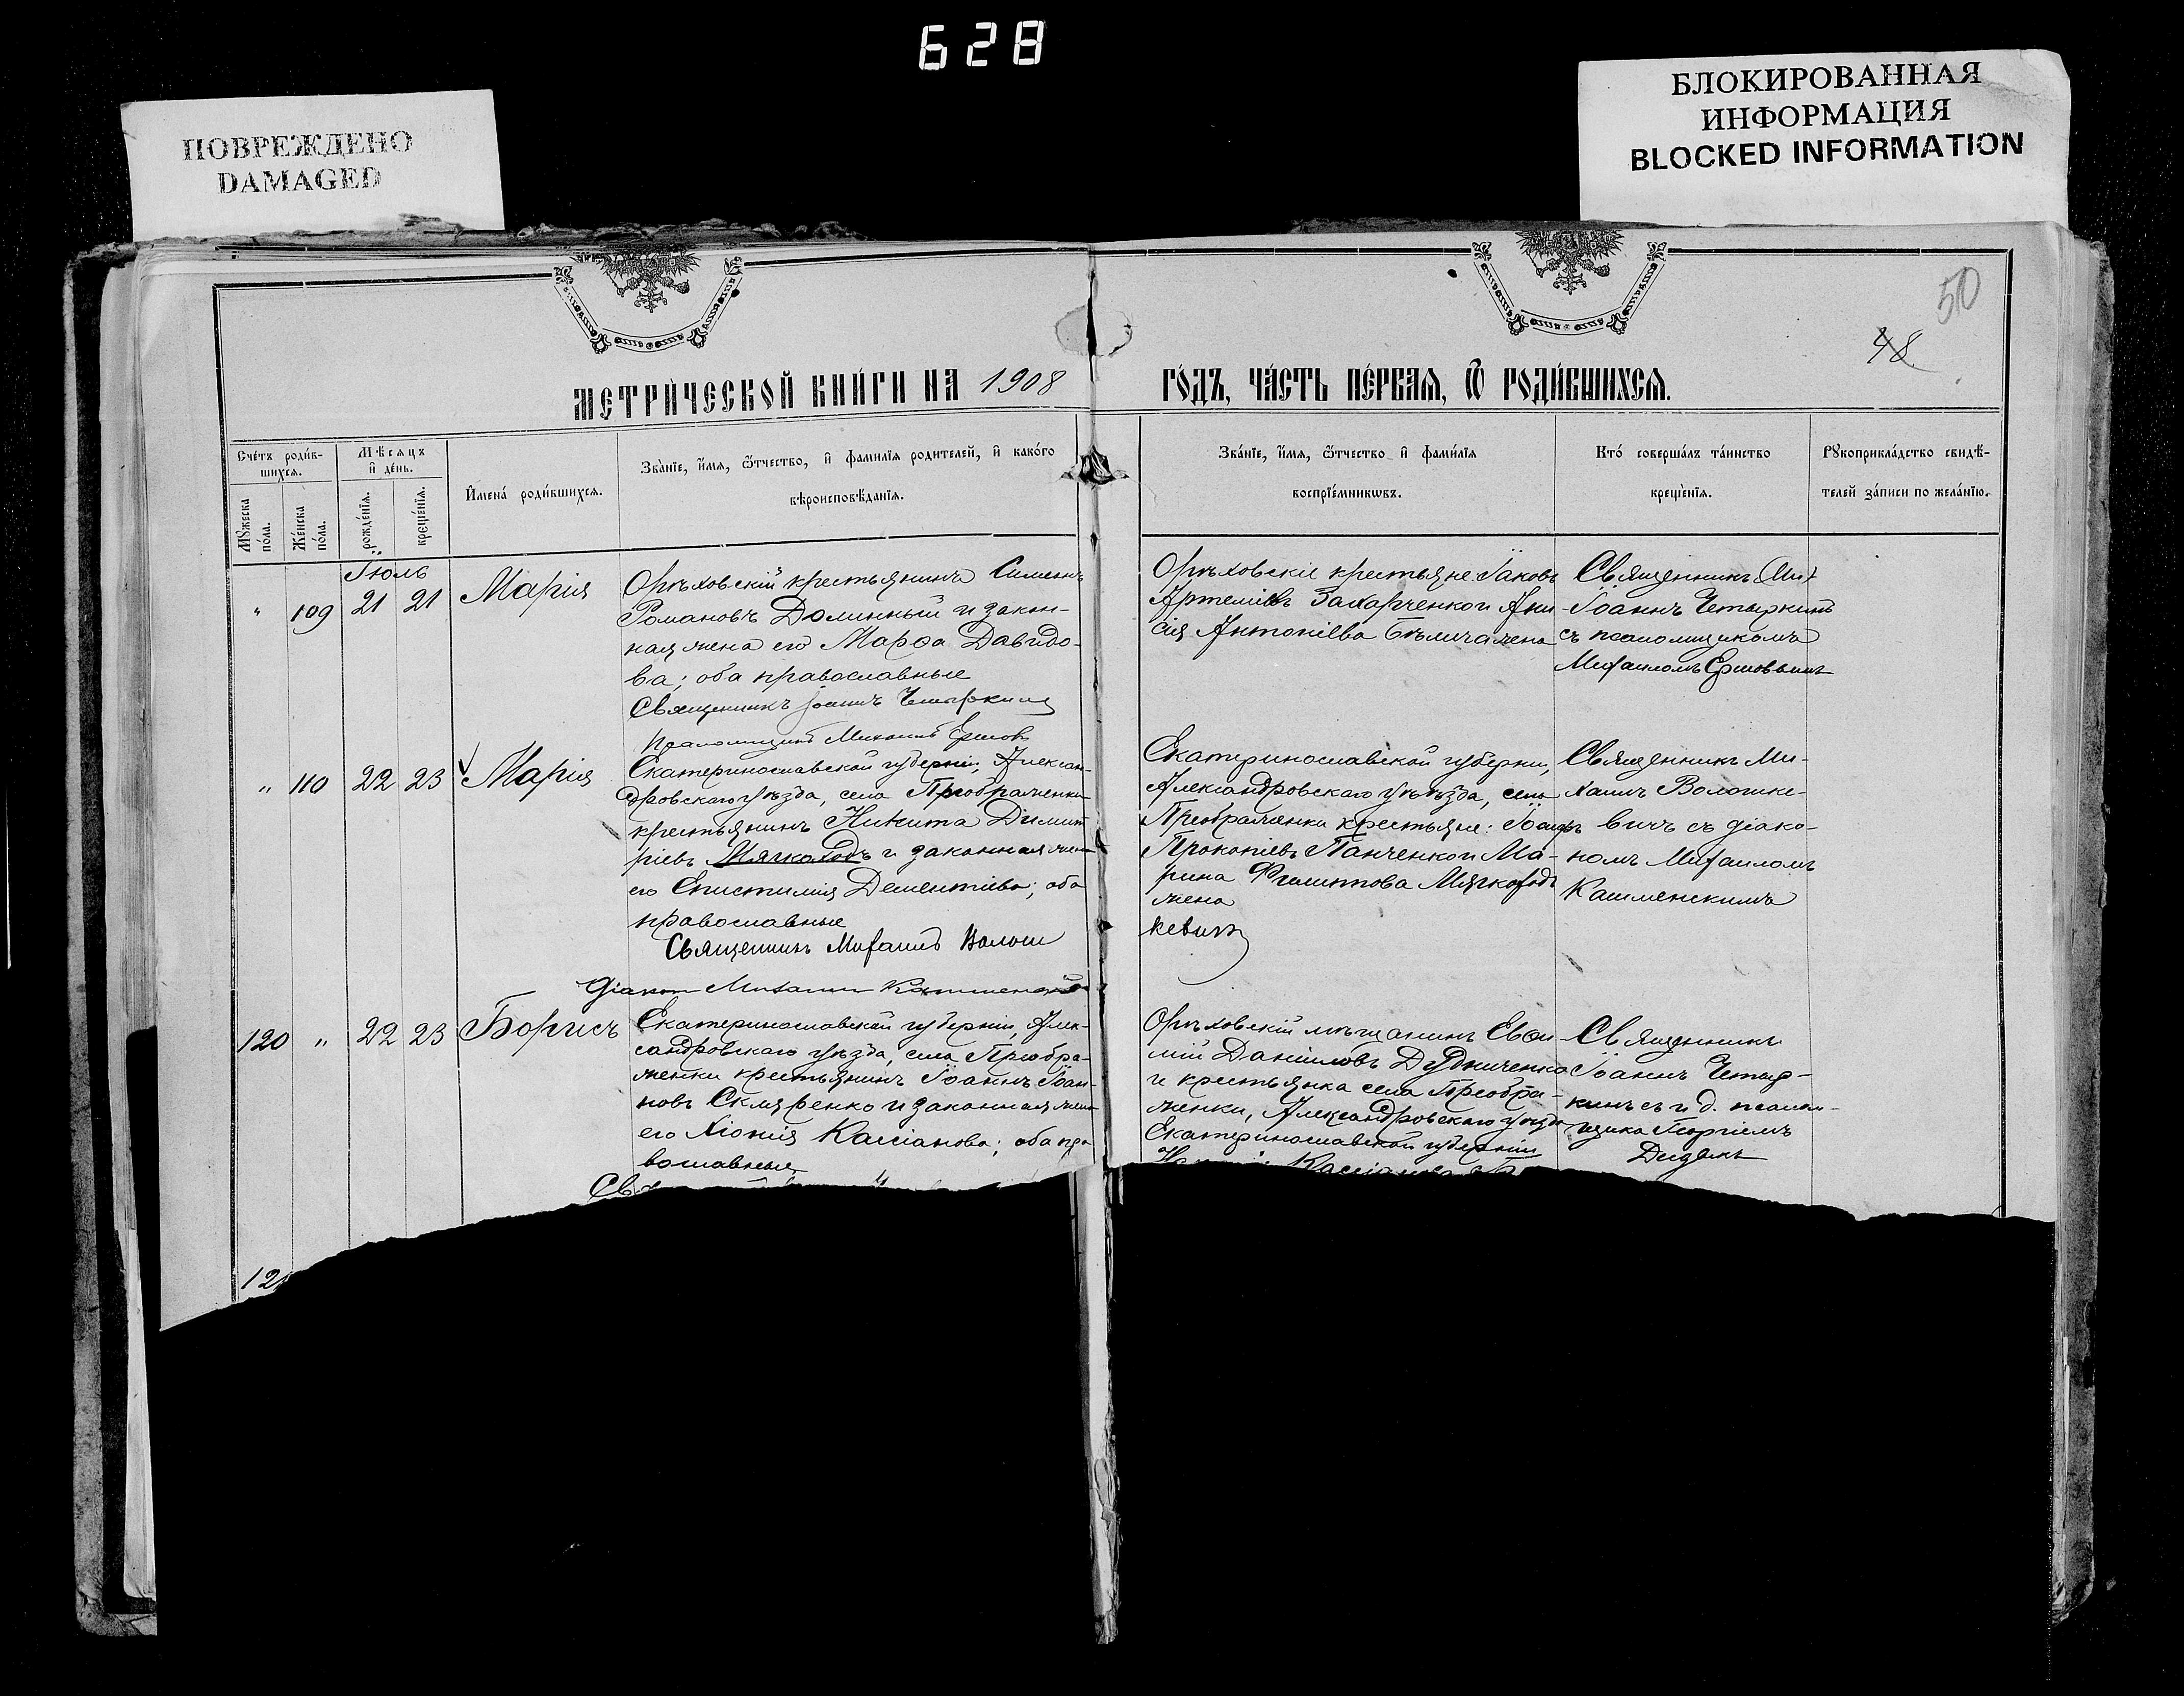 628
ПОВРЕЖДЕНО
DAMAGED
БЛОКИРОВАННАЯ
ИНФОРМАЦИЯ
BLOCKED INFORMATION
50
48
МЕТРИ́ЧЕСКОЙ КНИ́ГИ НА 1908
ГО́ДЪ, ЧА́СТЬ ПЕ́РВАЯ, Ѿ РОДИ́ВШИХСЯ.
Сче́тъ роди́в-
шихся.
Мꙋжеска по́ла.
Же́нска по́ла.
Мѣ́сяцъ
и҆ де́нь.
рожде́нїѧ.
креще́нїѧ.
И҆мена̀ роди́вшихсѧ.
Зва́нїе, и҆́мѧ, ѻ҆́тчество, и҆ фамилїѧ родителей, и҆ како́го
вѣроисповѣ́данїѧ.
Зва́нїе, и҆́мѧ, ѻ҆́тчество и҆ фами́лїѧ
воспрїе́мникѡвъ.
Кто̀ соверша́лъ та́инство
креще́нїѧ.
Рꙋкоприкла́дство свидѣ́-
телей за́писи по жела́нїю.
Іюль
" 109 21 21 Марія
Орѣховскій крестьянинъ Симеонъ
Романовъ Долинный и закон-
ная жена его Марѳа Давидо-
ва; оба православные
Священникъ Іоаннъ Четыркинъ
Псаломщикъ Михаилъ Ершовъ
Орѣховскіе крестьяне: Іаковъ
Артеміевъ Захарченко и Ани
сія Антоніева Бѣлича жена
Священникъ
Іоаннъ Четыркинъ
съ псаломщикомъ
Михаиломъ Ершовымъ
" 110 22 23 Марія
Екатеринославской губерніи, Алексан-
дровскаго уѣзда, села Преображенки
крестьянинъ Никита Димит
ріевъ Мягкоходъ и законная жена
его Епистимія Дементіева; оба
православные
Священникъ Михаилъ Волош
Діаконъ Михаилъ
Екатеринославской губерніи,
Александровскаго уѣзда, села
Преображенки крестьяне: Іоаннъ
Прокопіевъ Панченко и Ма-
рина Филиппова Мягкоходъ
жена
кевичъ
Священникъ Ми-
хаилъ Волошке-
вичъ съ діако-
номъ Михаиломъ
Кашменскимъ
120 " 22 23 Борисъ
Екатеринославской губерніи, Алек-
сандровскаго уѣзда, села Преобра-
женки крестьянинъ Іоаннъ Іоан-
новъ Скляренко и законная жена
его Хіонія Кассіанова; оба пра
вославные
Св
Орѣховскій мѣщанинъ Евѳи-
мій Даніиловъ Дудниченко
и крестьянка села Преобра-
женки, Александровскаго уѣзда
Екатеринославской губерніи
Кассіанова
Священникъ
Іоаннъ Четыр-
кинъ съ и. д. псалом-
щика Георгіемъ
Дидыкъ
12